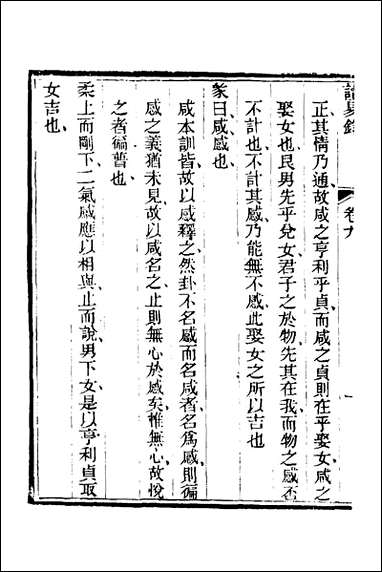 卷九
一
正其情乃通故咸之亨利乎貞而咸之貞則在乎娶女咸之
娶女也艮男先乎兌女君子之於物先其在我而物之感否
不計也不計其感乃能無不感此娶女之所以吉也
彖曰咸感也
咸本訓皆故以感釋之然卦不名感而名咸者名爲感則徧
感之義猶未見故以咸名之止則無心於感矣惟無心故悅
之者徧暜也
柔上而剛下二氣感應以相與止而說男下女是以亨利貞取
女吉也